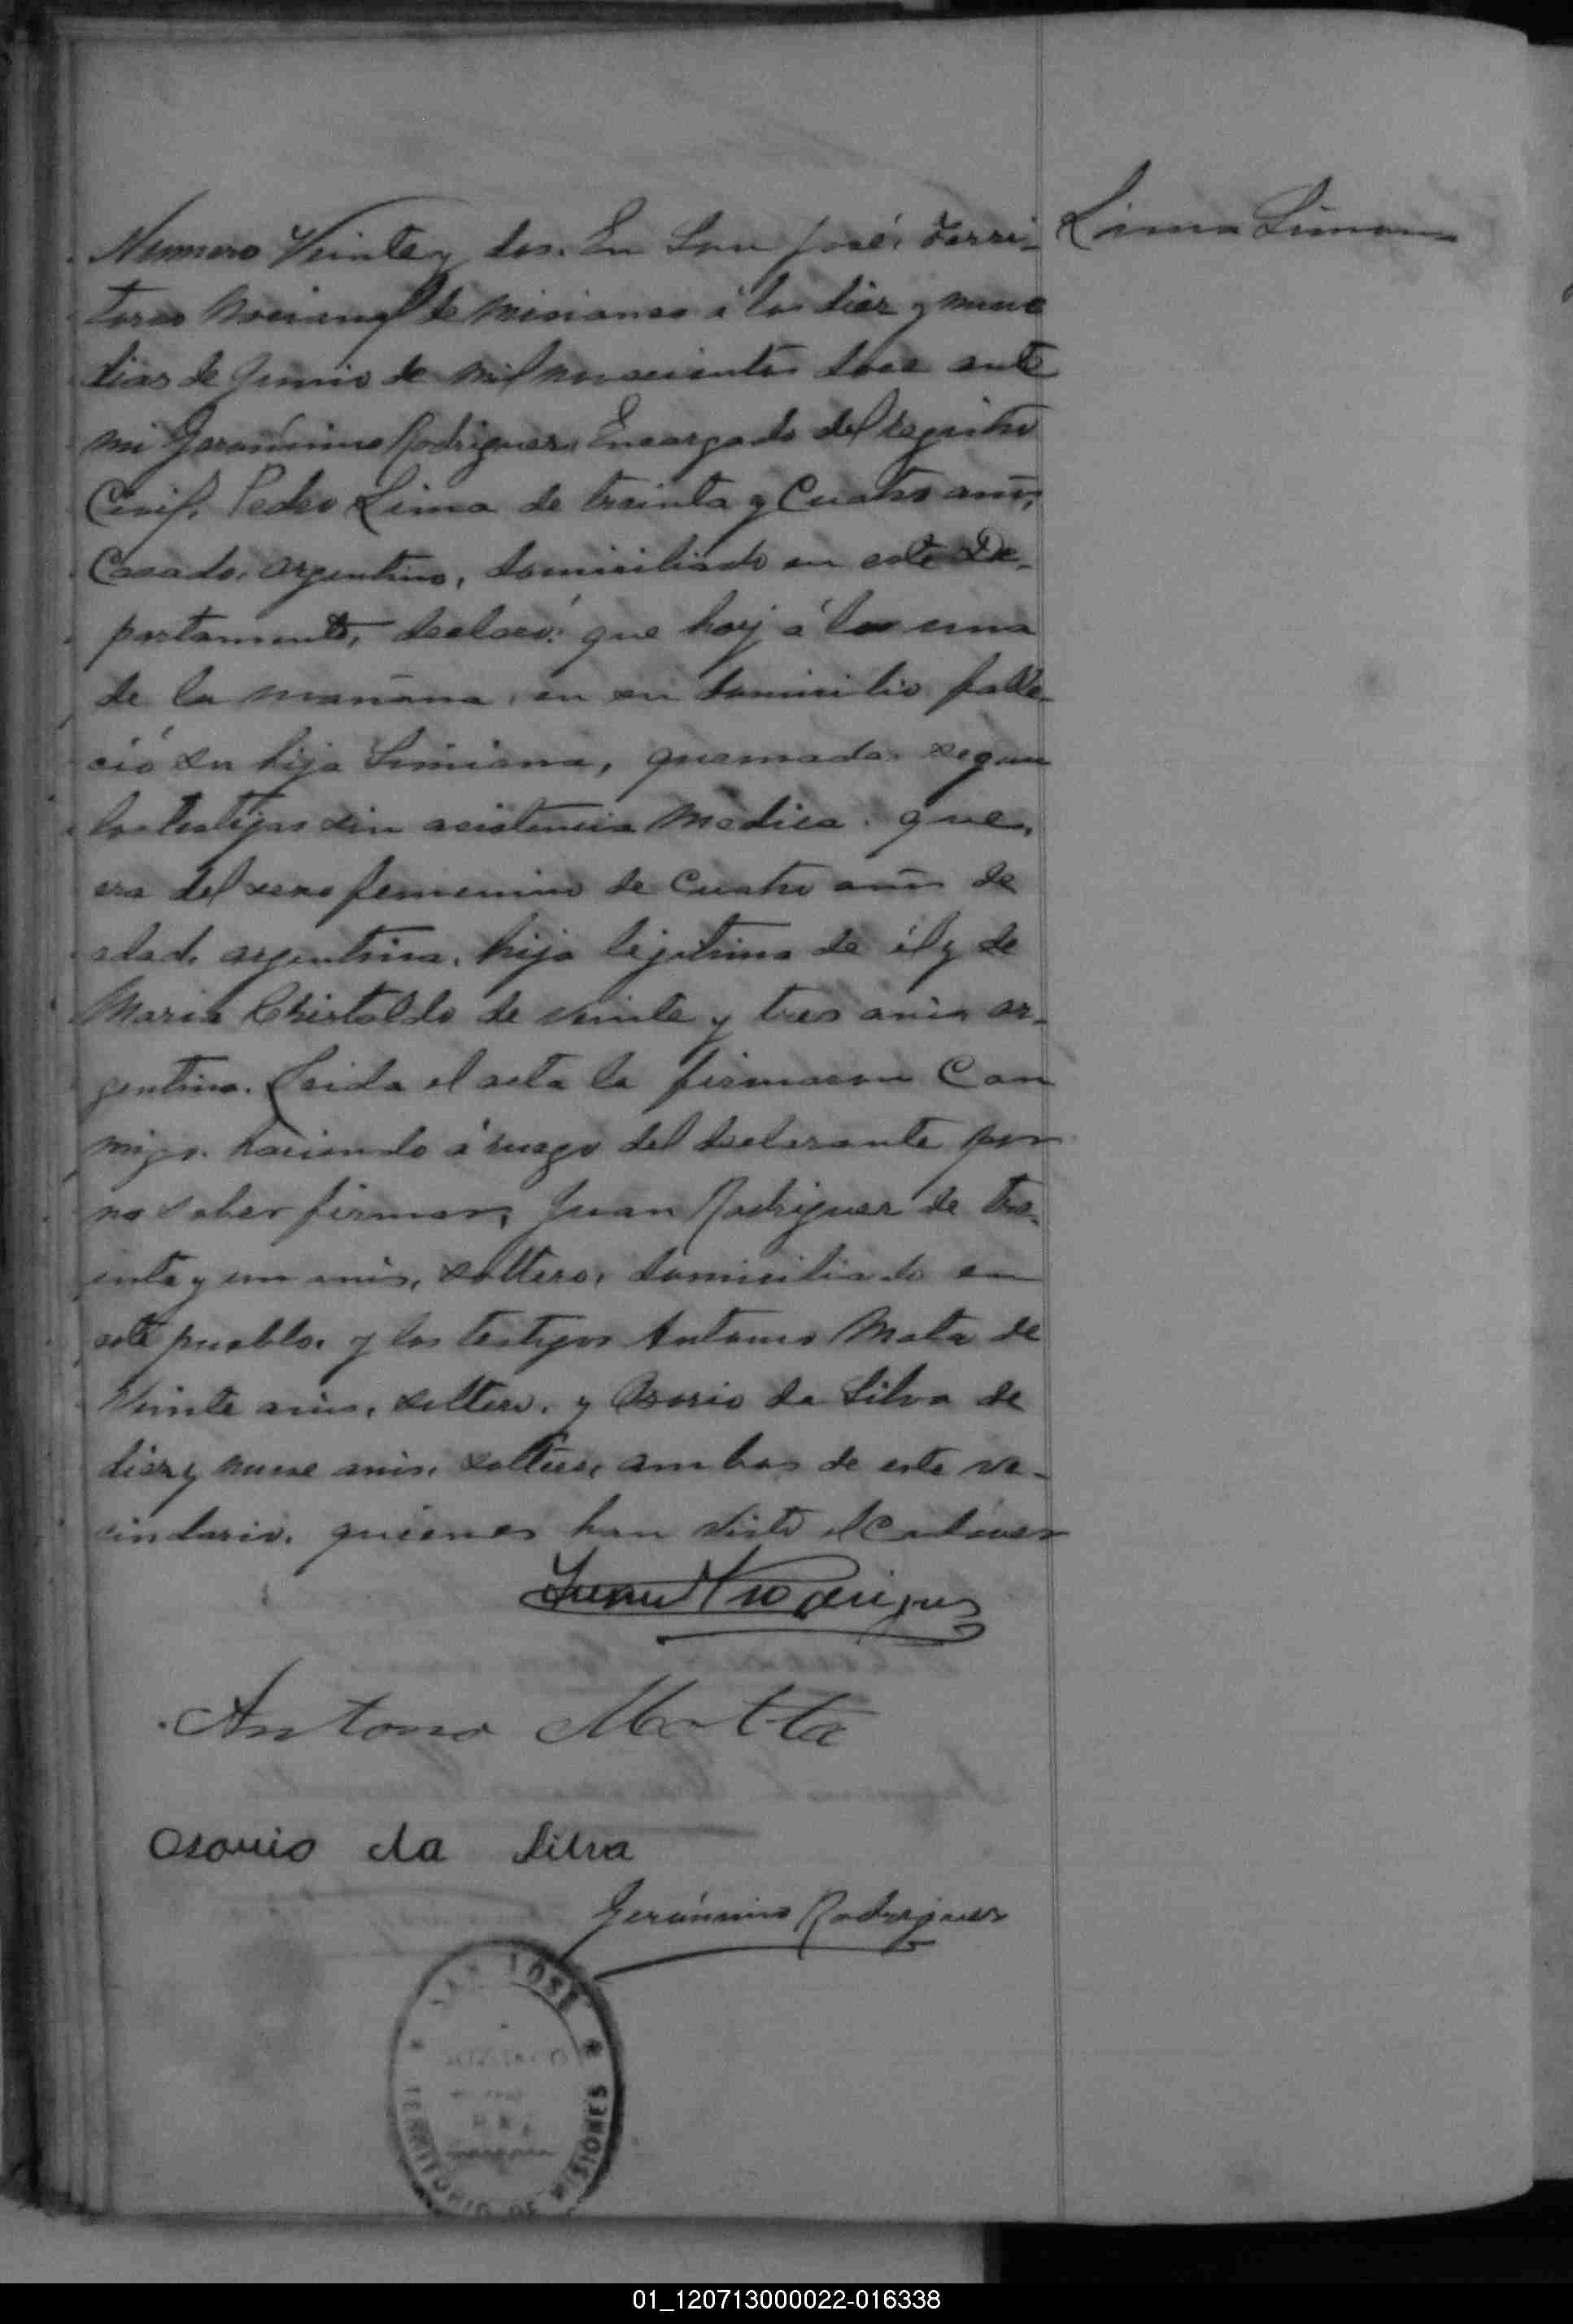 Lima Simiana
Numero Veinte y dos. En San José, Terri-
torio Nacional de Misiones á los diez y nueve
dias de Junio de mil novecientos doce ante
mi Gerónimo Rodriguez, Encargado del Registro
Civil, Pedro Lima de treinta y Cuatro años,
Casado, argentino, domiciliado en este De-
partamento, declaró: que hoy á las una
de la mañana, en su domicilio falle-
ció su hija Simiana, quemada segun
los testigos sin asistencia Medica. que,
era del sexo femenino de Cuatro años de
edad, argentina, hija lejitima de él y de
Maria Christaldo de veinte y tres años ar-
gentina. Leida el acta la firmaron Con
migo. haciendo á ruego del declarante por
no saber firmar, Juan Rodriguez de tre-
inta y un años, soltero, domiciliado en
este pueblo, y los testigos Antonio Mata de
Veinte años, soltero, y Osorio da Silva de
diez y nueve años, soltero, ambos de este ve-
cindario, quienes han visto el Cadaver
Juan Rodrigues
Antonio Motta
Osorio da Silva
Gerónimo Rodriguez
SAN JOSÉ
TERRITORIO DE MISIONES
01_120713000022-016338